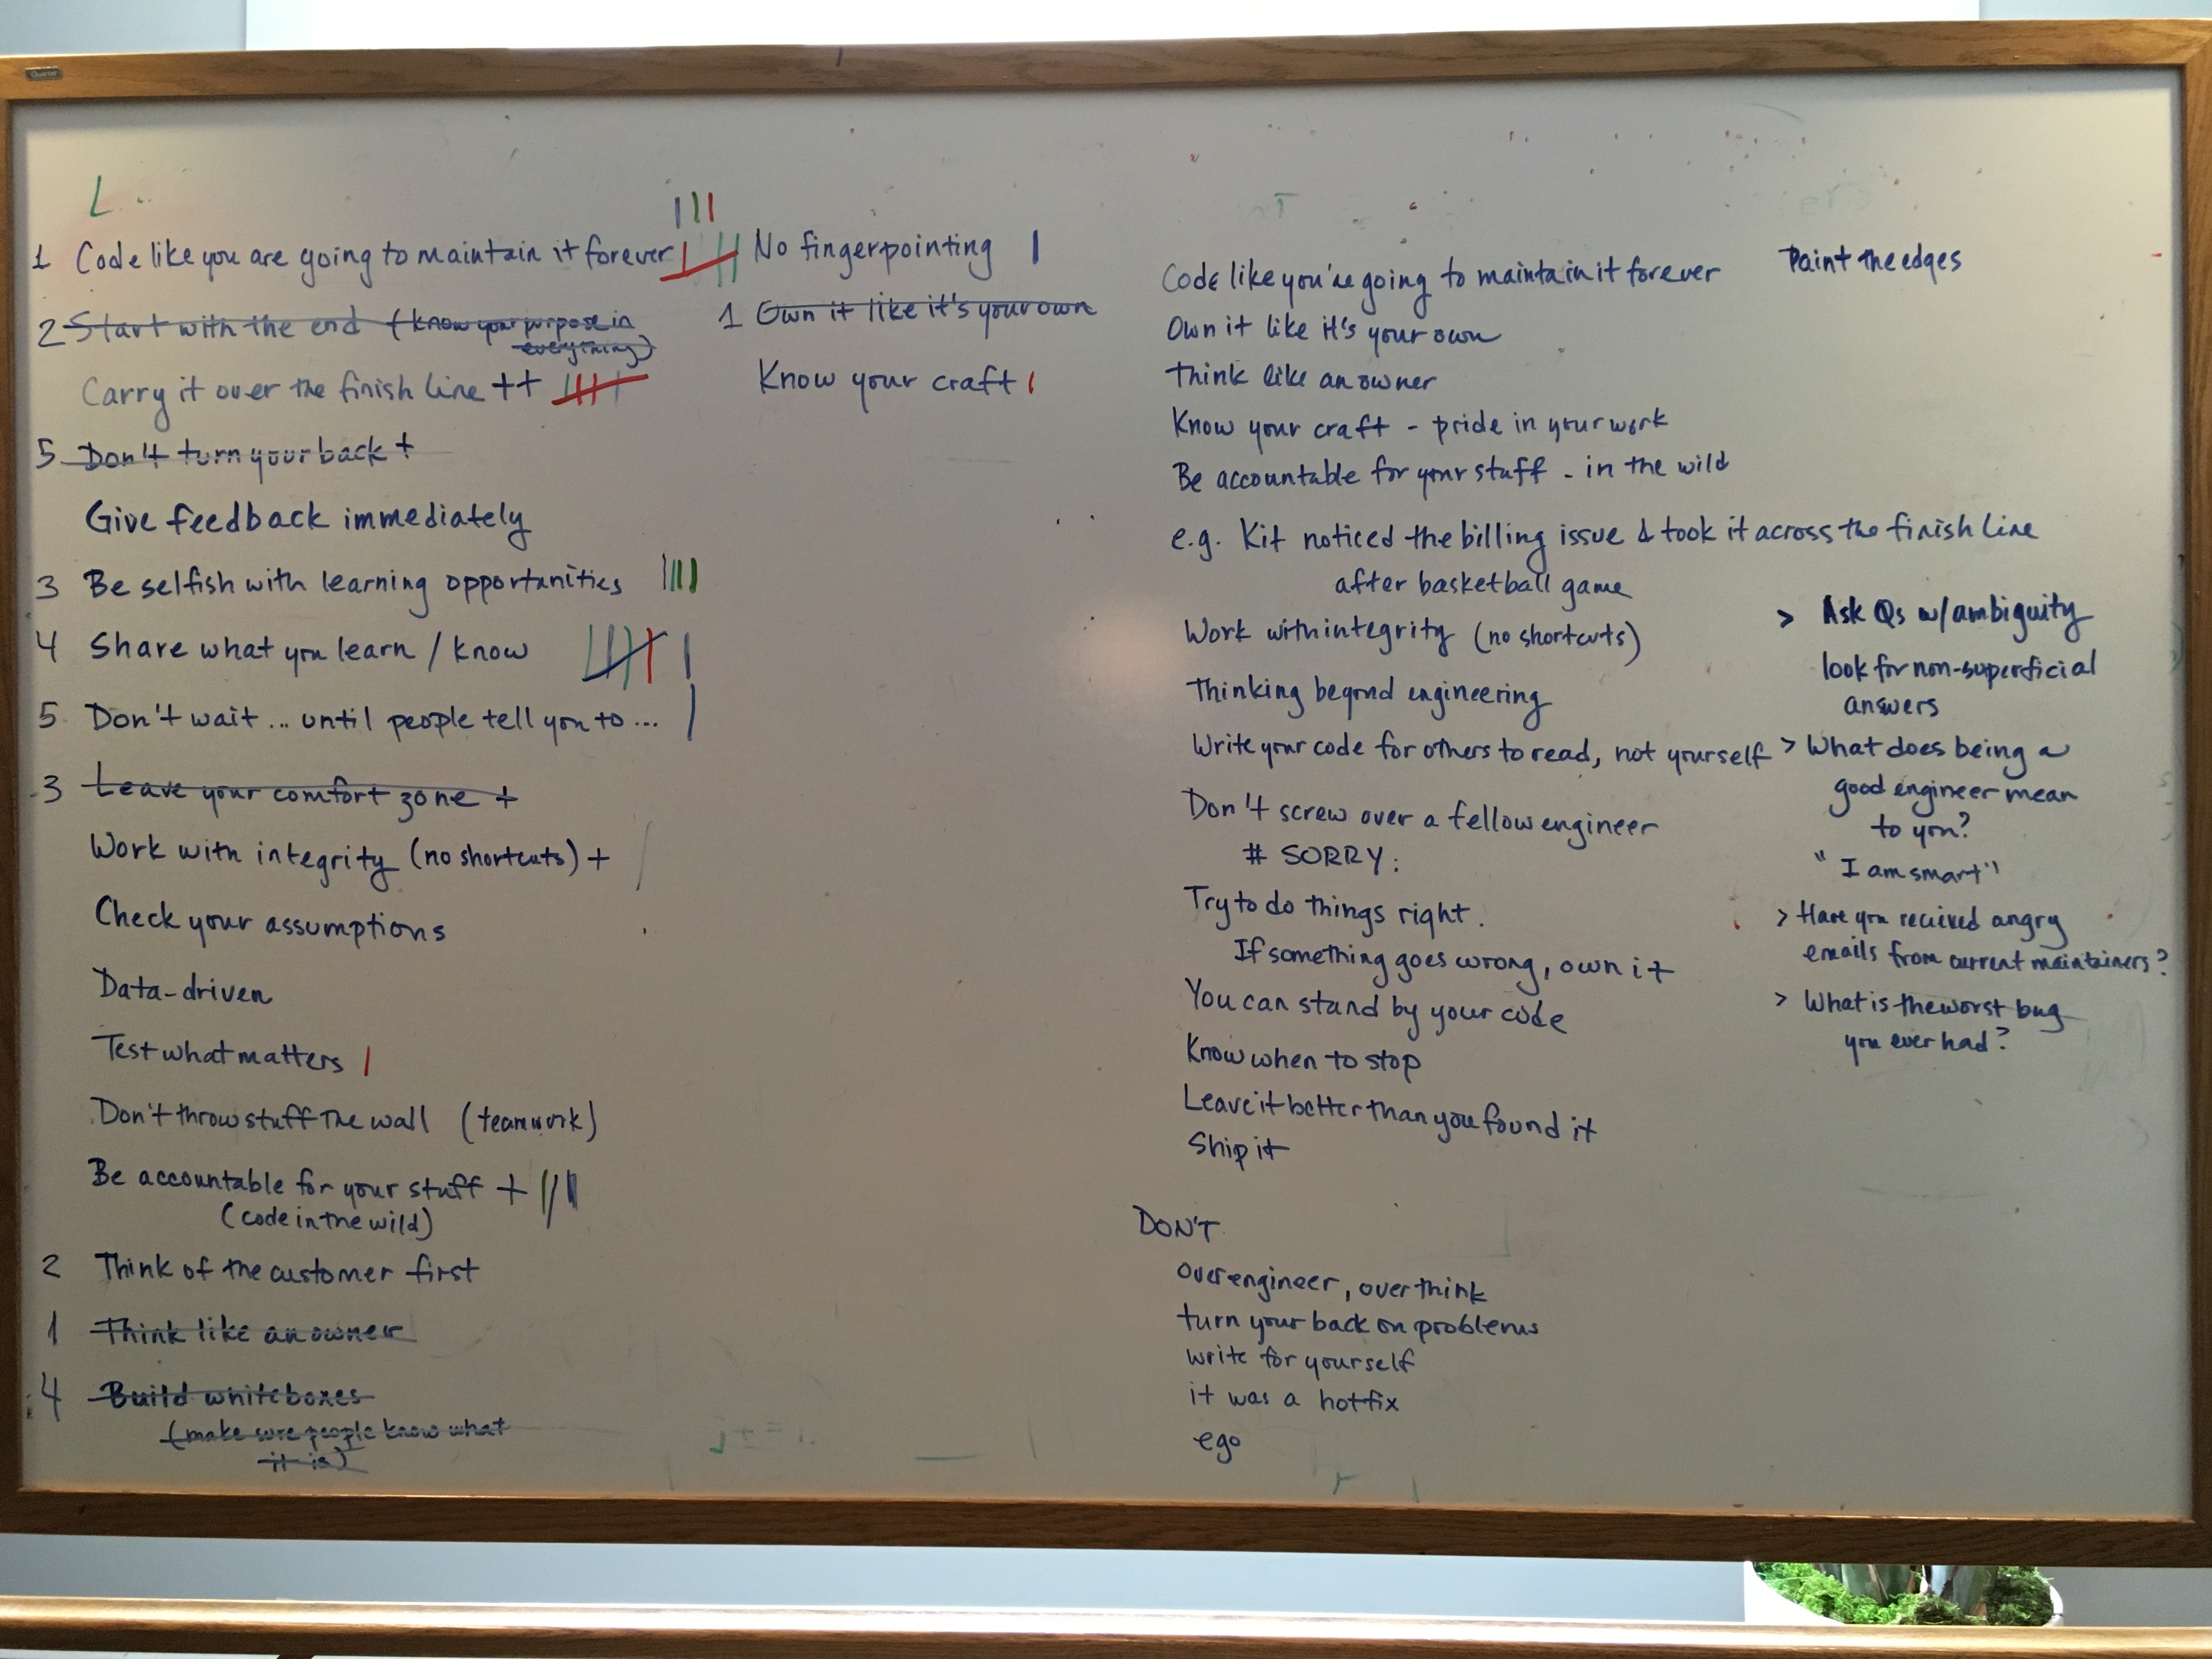 Quartet
1 Code like you are going to maintain it forever
2 Start with the end (know your purpose in
everything)
Carry it over the finish line ++
5 Don't turn your back +
Give feedback immediately
3 Be selfish with learning opportunities
4 Share what you learn / know
5 Don't wait... until people tell you to...
3 Leave your comfort zone +
Work with integrity (no shortcuts) +
Check your assumptions
Data-driven
Test what matters
Don't throw stuff the wall (teamwork)
Be accountable for your stuff +
(code in the wild)
2 Think of the customer first
1 Think like an owner
4 Build whiteboxes
(make sure people know what
it is)
No fingerpointing
1 Own it like it's your own
Know your craft
Code like you're going to maintain it forever
Own it like it's your own
Think like an owner
Know your craft - pride in your work
Be accountable for your stuff - in the wild
e.g. Kit noticed the billing issue & took it across the finish line
after basketball game
Work with integrity (no shortcuts)
Thinking beyond engineering
Write your code for others to read, not yourself
Don't screw over a fellow engineer
# SORRY.
Try to do things right.
If something goes wrong, own it
You can stand by your code
Know when to stop
Leave it better than you found it
Ship it
DON'T
overengineer, overthink
turn your back on problems
write for yourself
it was a hotfix
ego
Paint the edges
> Ask Qs w/ambiguity
look for non-superficial
answers
> What does being a
good engineer mean
to you?
"I am smart"
> Have you recieved angry
emails from current maintainers?
> What is the worst bug
you ever had?